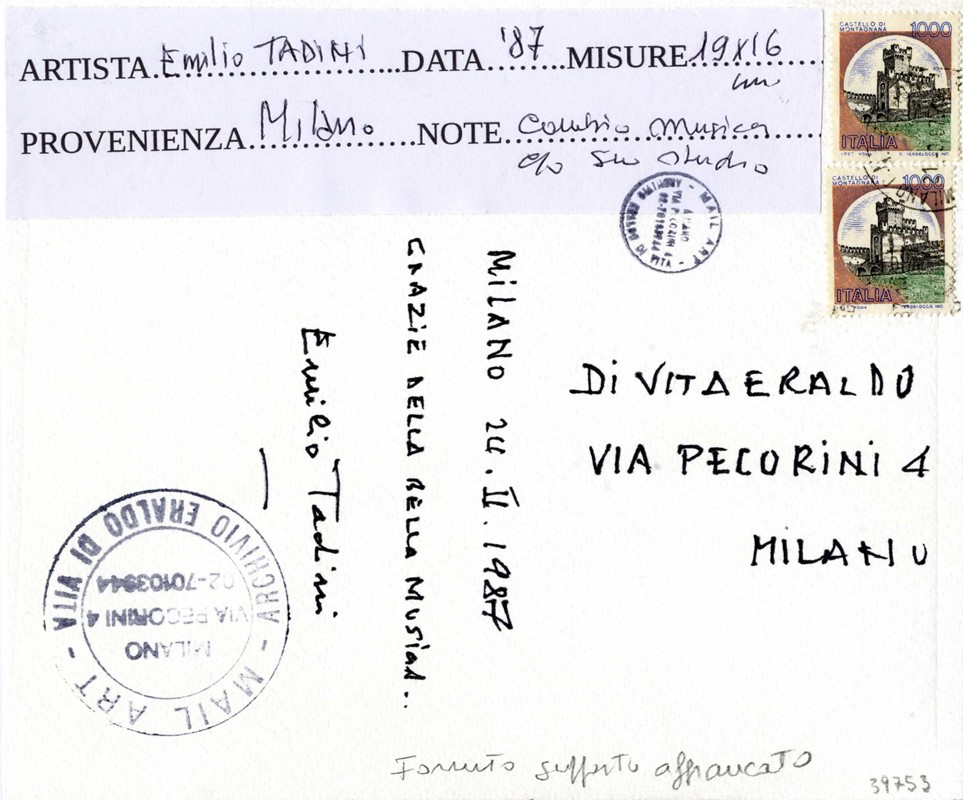 ARTISTA Emilio TADINI DATA '87 MISURE 19x16
PROVENIENZA Milano NOTE Cambio musica
c/o suo studio
CASTELLO DI
MONTAGNANA
1000
ITALIA
CASTELLO DI
MONTAGNANA
1000
ITALIA
MILANO
MAIL ART - ARCHIVIO ERALDO DI VITA -
MILANO
VIA PECORINI 4
02-70103944
MILANO 24.II.1987
GRAZIE DELLA BELLA MUSICA.
Emilio Tadini
DI VITA ERALDO
VIA PECORINI 4
MILANO
MAIL ART - ARCHIVIO ERALDO DI VITA -
MILANO
VIA PECORINI 4
02-70103944
Fornito supporto affrancato
39753